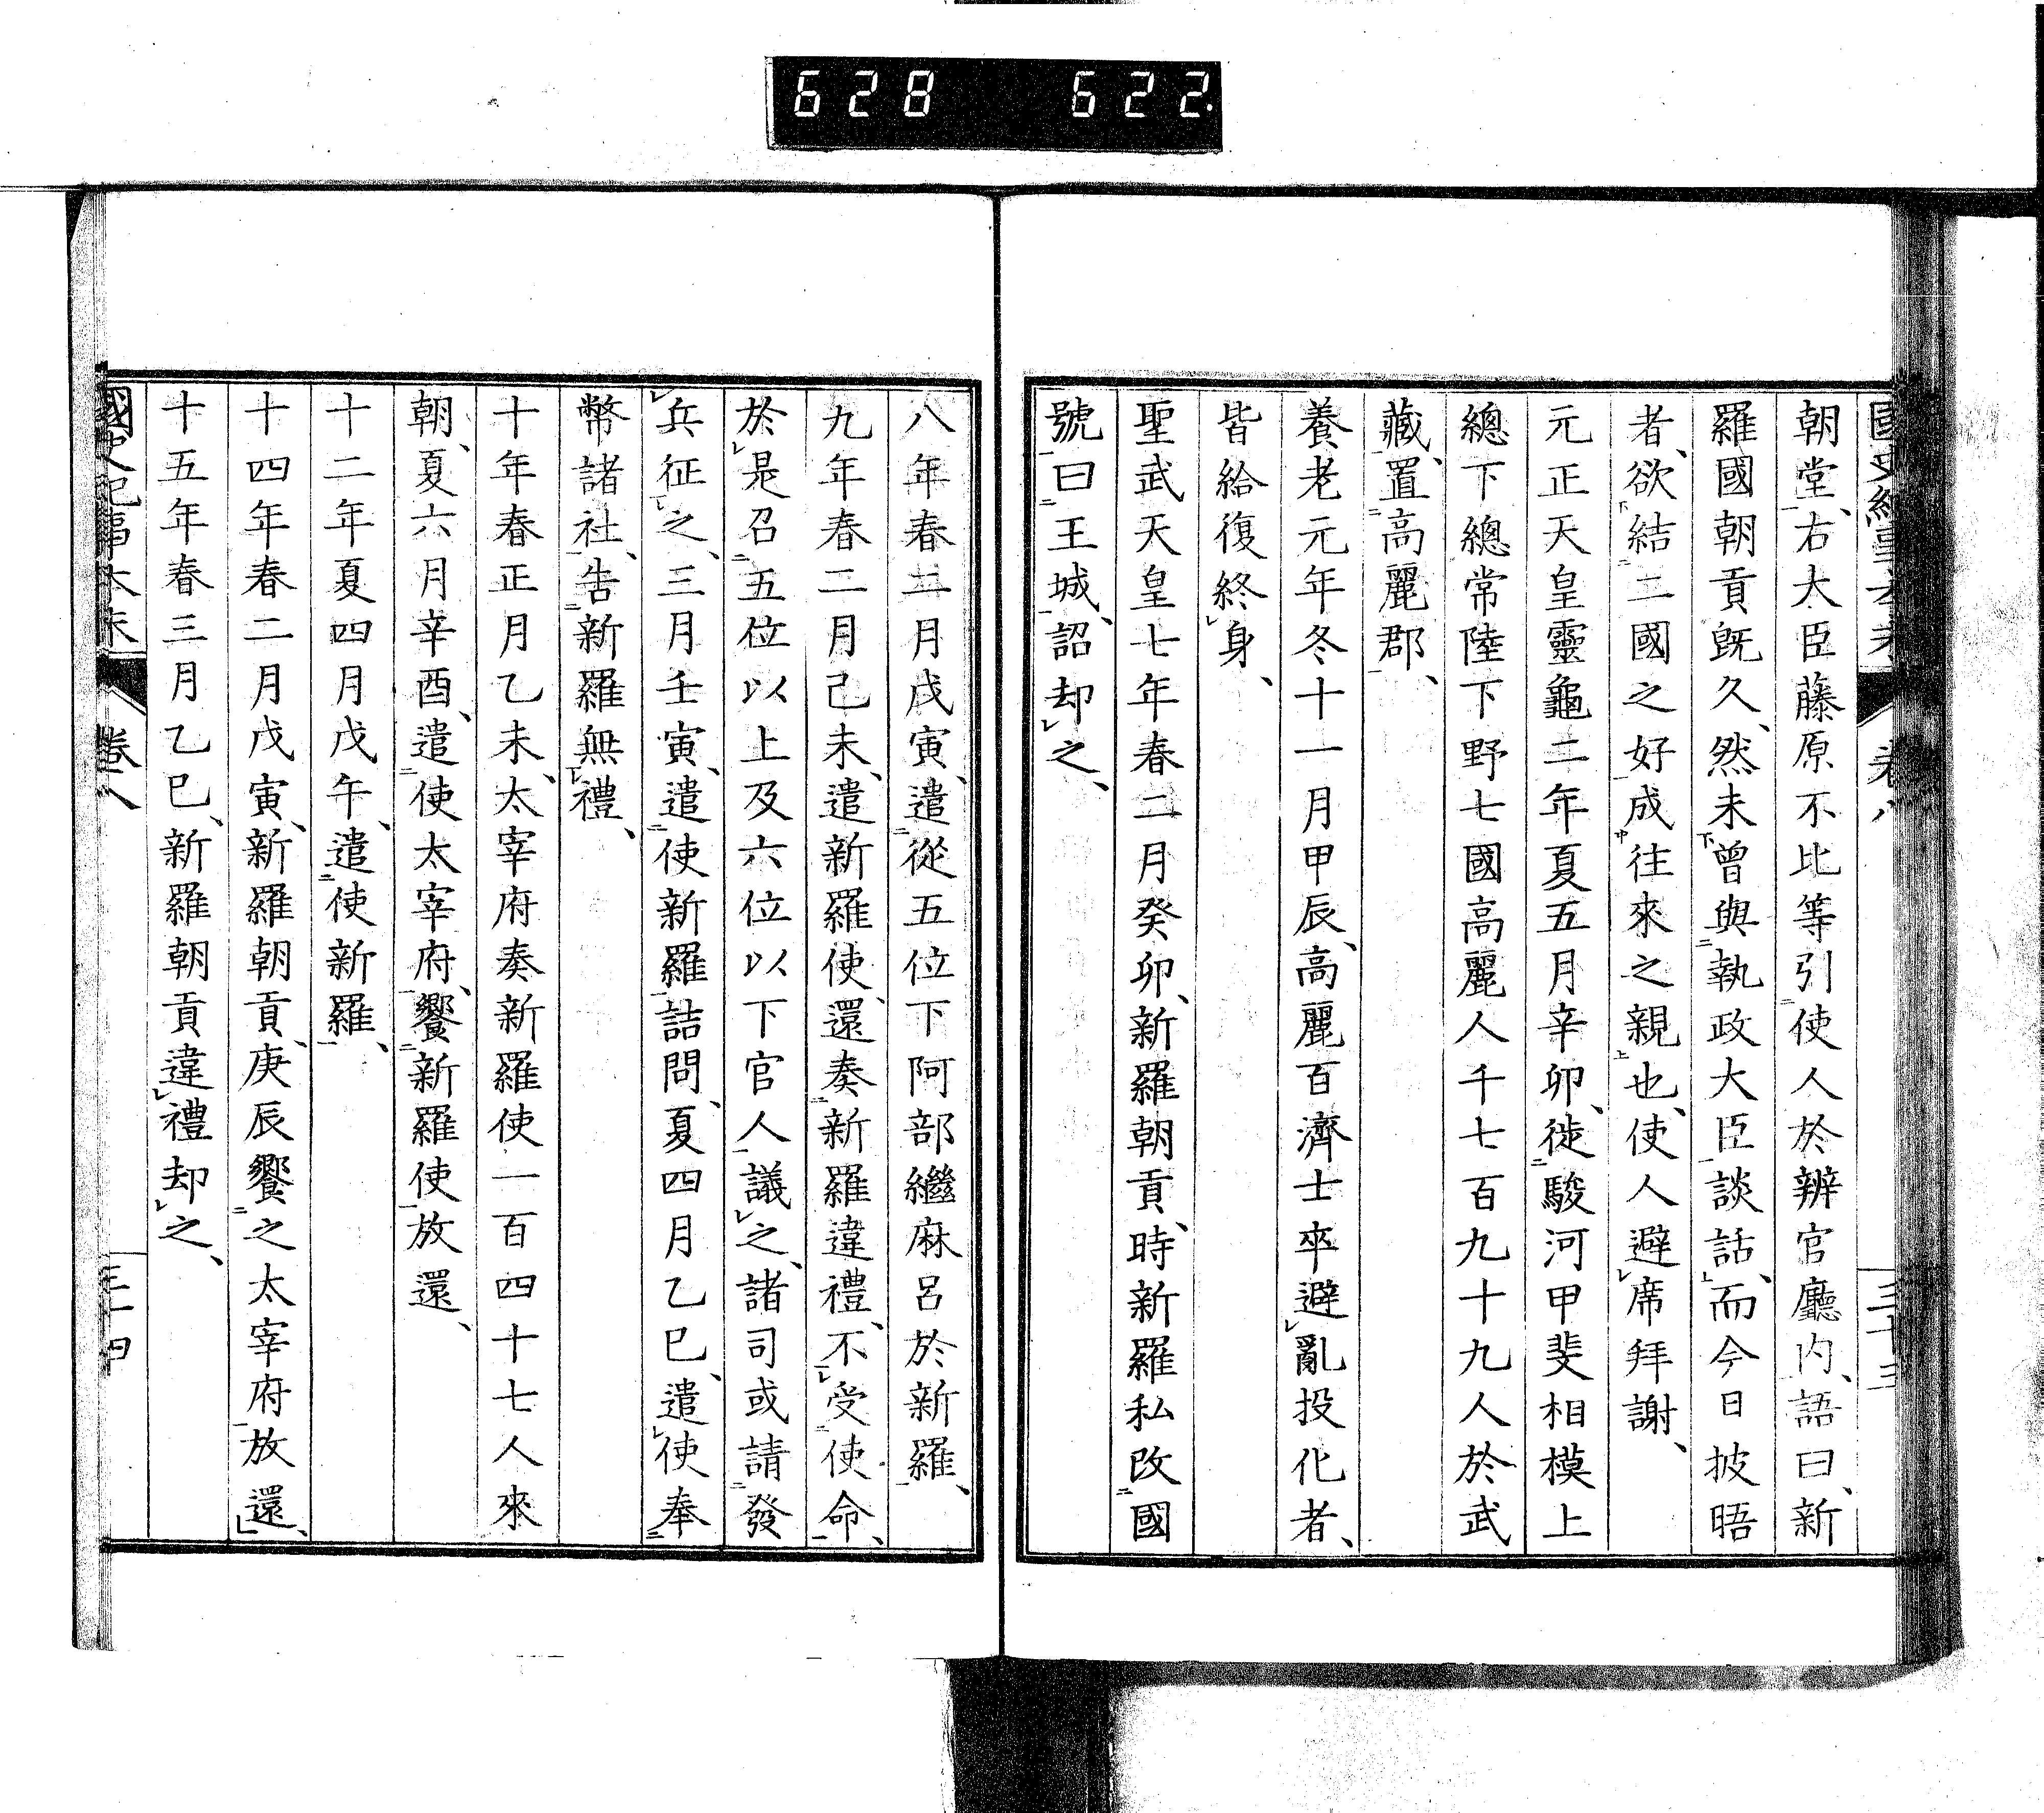 628 622
朝堂、右大臣藤原不比等引使人於辨官廳内、語曰、新
羅國朝貢既久、然未曾與執政大臣談話、而今日披晤
者、欲結二國之好成往來之親也、使人避席拜謝、
元正天皇靈龜二年夏五月辛卯、徙駿河甲斐相模上
總下總常陸下野七國高麗人千七百九十九人於武
藏、置高麗郡、
養老元年冬十一月甲辰、高麗百濟士卒避亂投化者、
皆給復終身、
聖武天皇七年春二月癸卯、新羅朝貢、時新羅私改國
號曰王城、詔却之、
八年春二月戊寅、遣從五位下阿部繼麻呂於新羅、
九年春二月己未、遣新羅使、還奏新羅違禮、不受使命、
於是召五位以上及六位以下官人議之、諸司或請發
兵征之、三月壬寅、遣使新羅詰問、夏四月乙巳、遣使奉
幣諸社、告新羅無禮、
十年春正月乙未、太宰府奏新羅使一百四十七人來
朝、夏六月辛酉、遣使太宰府、饗新羅使放還、
十二年夏四月戊午、遣使新羅、
十四年春二月戊寅、新羅朝貢、庚辰饗之太宰府放還、
十五年春三月乙巳、新羅朝貢違禮却之、
國史紀事本末 卷八